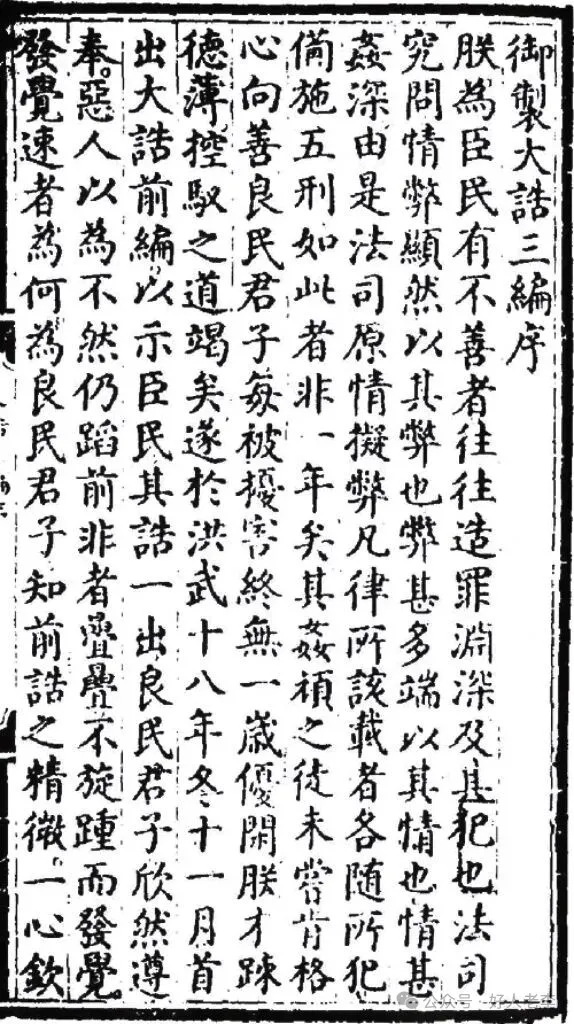 御製大誥三編序
朕為臣民有不善者往往造罪淵深及其犯也法司
究問情弊顯然以其弊也弊甚多端以其情也情甚
姦深由是法司原情擬弊凡律所該載者各随所犯
俻施五刑如此者非一年矣其姦頑之徒未嘗肯格
心向善良民君子每被擾害終無一歳優閑朕才踈
德薄控馭之道竭矣遂於洪武十八年冬十一月首
出大誥前編以示臣民其誥一出良民君子欣然遵
奉。惡人以為不然仍蹈前非者疊疊不旋踵而發覺。
發覺速者為何為良民君子知前誥之精微。一心欽
公众号 · 好人老